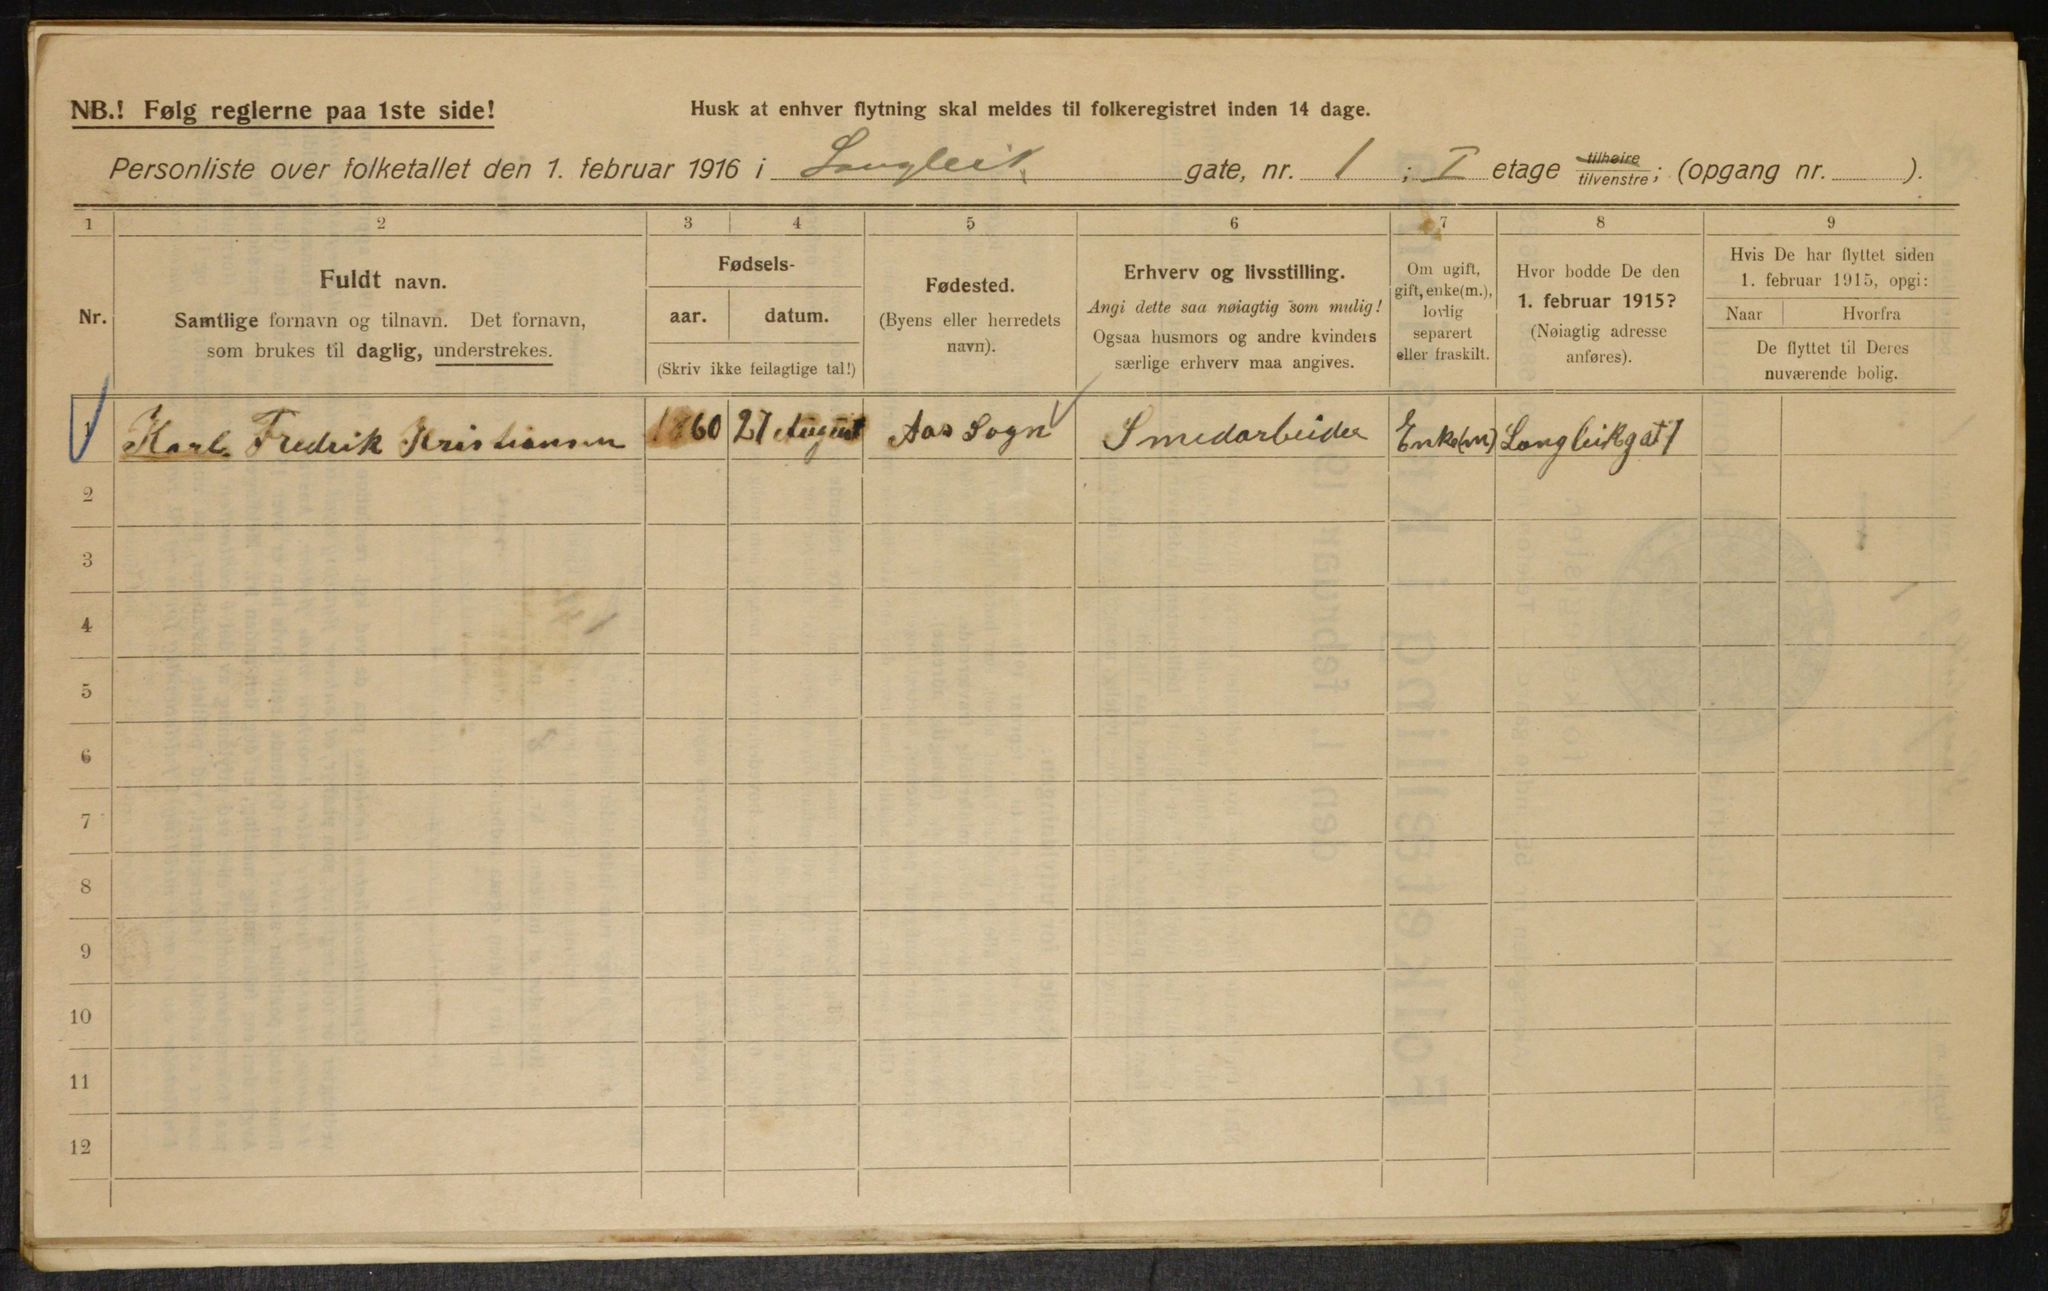 NB.! Følg reglerne paa 1ste side!
Husk at enhver flytning skal meldes til folkeregistret inden 14 dage.
Personliste over folketallet den 1. februar 1916 i Langleik gate, nr. 1 ; I etage tilhøire tilvenstre; (opgang nr. ).
1 2 3 4 5 6 7 8 9
Nr.
Fuldt navn.
Samtlige fornavn og tilnavn. Det fornavn,
som brukes til daglig, understrekes.
Fødsels-
aar. datum.
(Skriv ikke feilagtige tal!)
Fødested.
(Byens eller herredets
navn).
Erhverv og livsstilling.
Angi dette saa nøiagtig som mulig!
Ogsaa husmors og andre kvinders
særlige erhverv maa angives.
Om ugift,
gift, enke(m.),
lovlig
separert
eller fraskilt.
Hvor bodde De den
1. februar 1915?
(Nøiagtig adresse
anføres).
Hvis De har flyttet siden
1. februar 1915, opgi:
Naar Hvorfra
De flyttet til Deres
nuværende bolig.
1 Karl Fredrik Kristiansen 1860 27 August Aas Sogn Smedarbeider Enke(m) Langleikgat 1
2
3
4
5
6
7
8
9
10
11
12